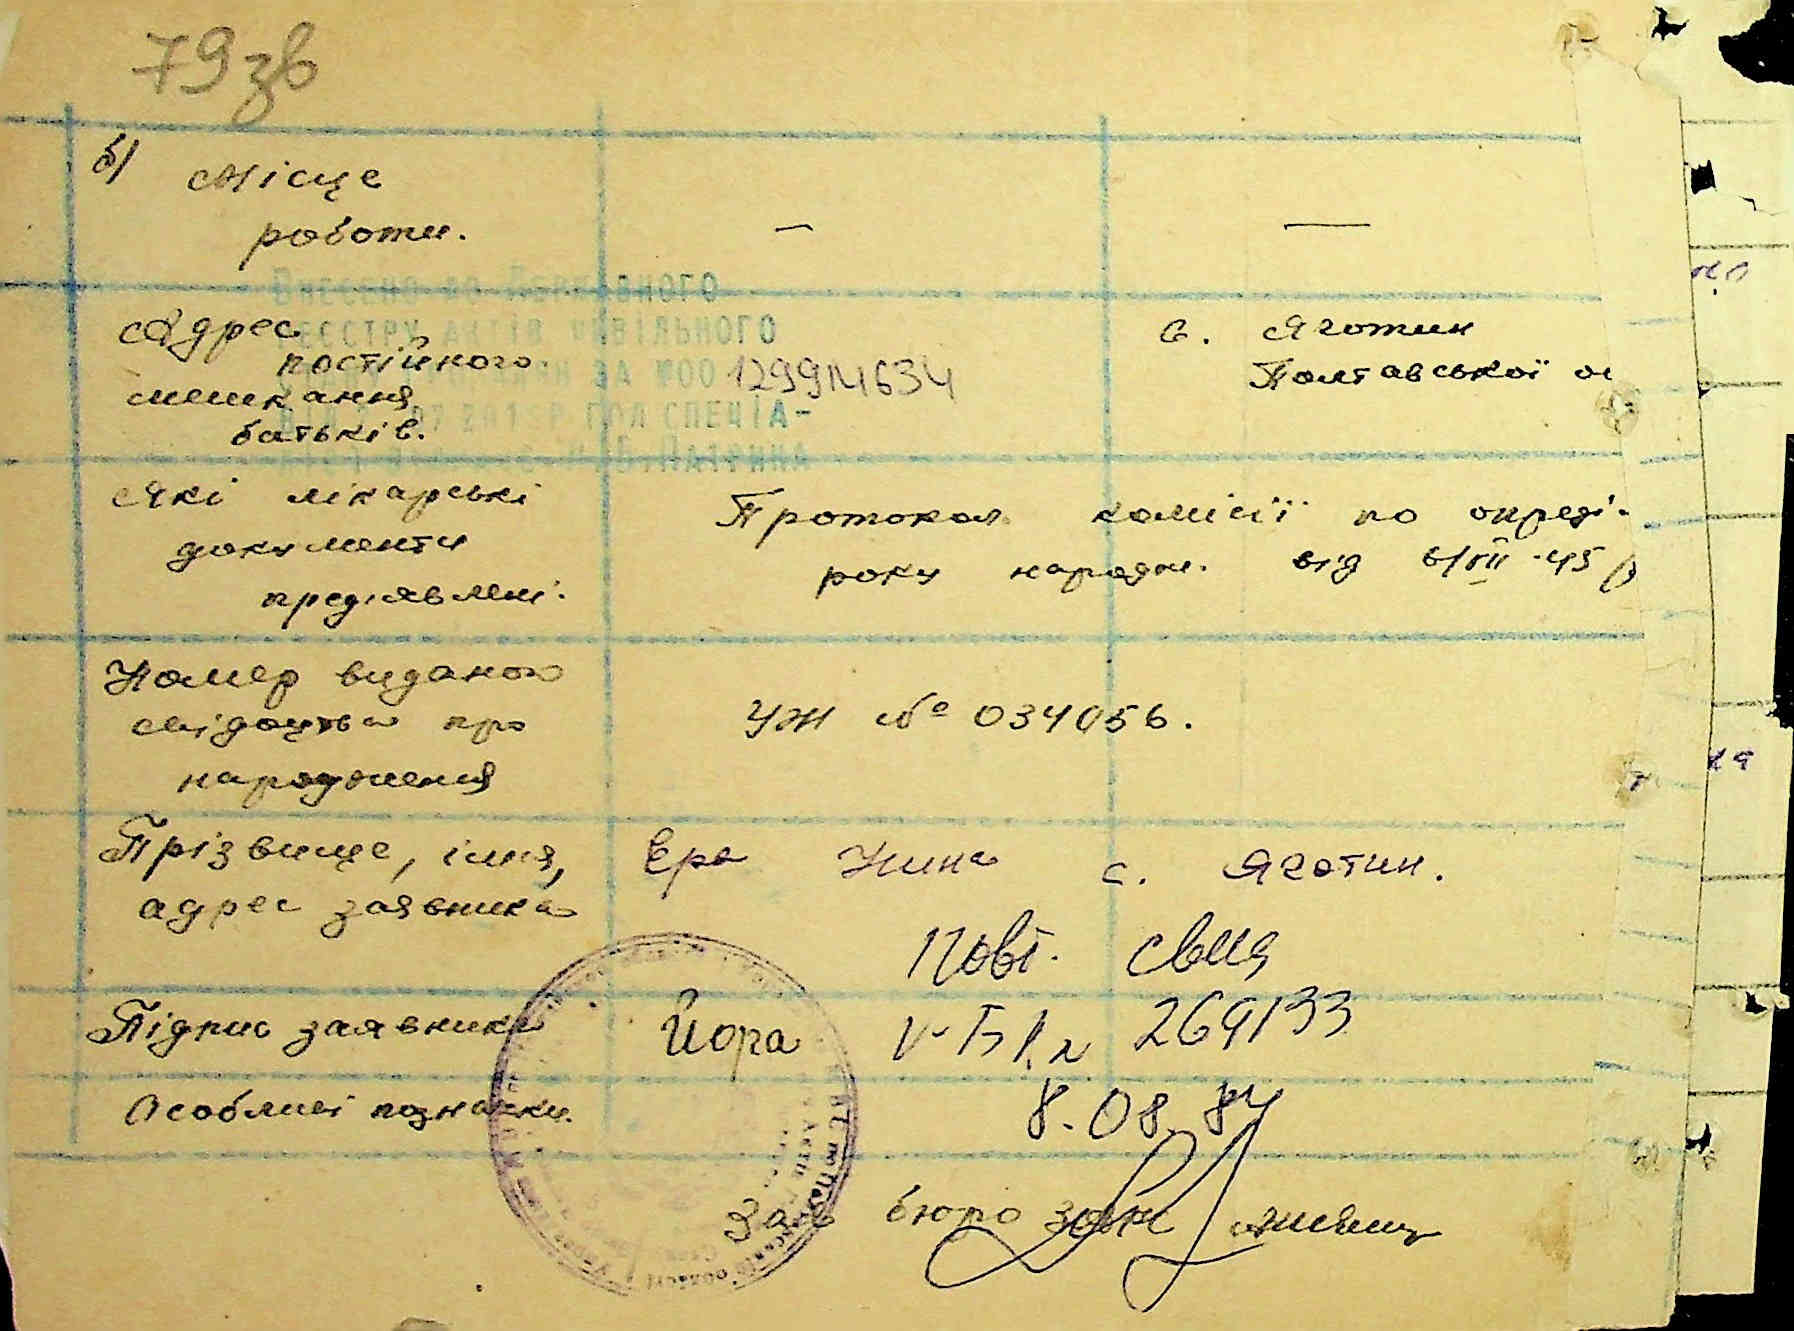 79зв
б) Місце
роботи. — —
Внесено до Державного
реєстру актів цивільного
за №00 129914634
2015р. гол. спеціа-
Адрес
постійного
мешкання
батьків.
с. Яготин
Полтавської о
Які лікарські
документи
предіявлені.
Протокол комісії по опреді-
року народж. від 6/VII-45 р
Номер виданого
свідоцтва про
народження
УЖ № 034056.
Прізвище, імя,
адрес заявника
Єра Нина с. Яготин.
Повт. св-ця
Підпис заявника
Йора
V-БК № 269133
Особливі познаки.
8.08.84
Зав бюро